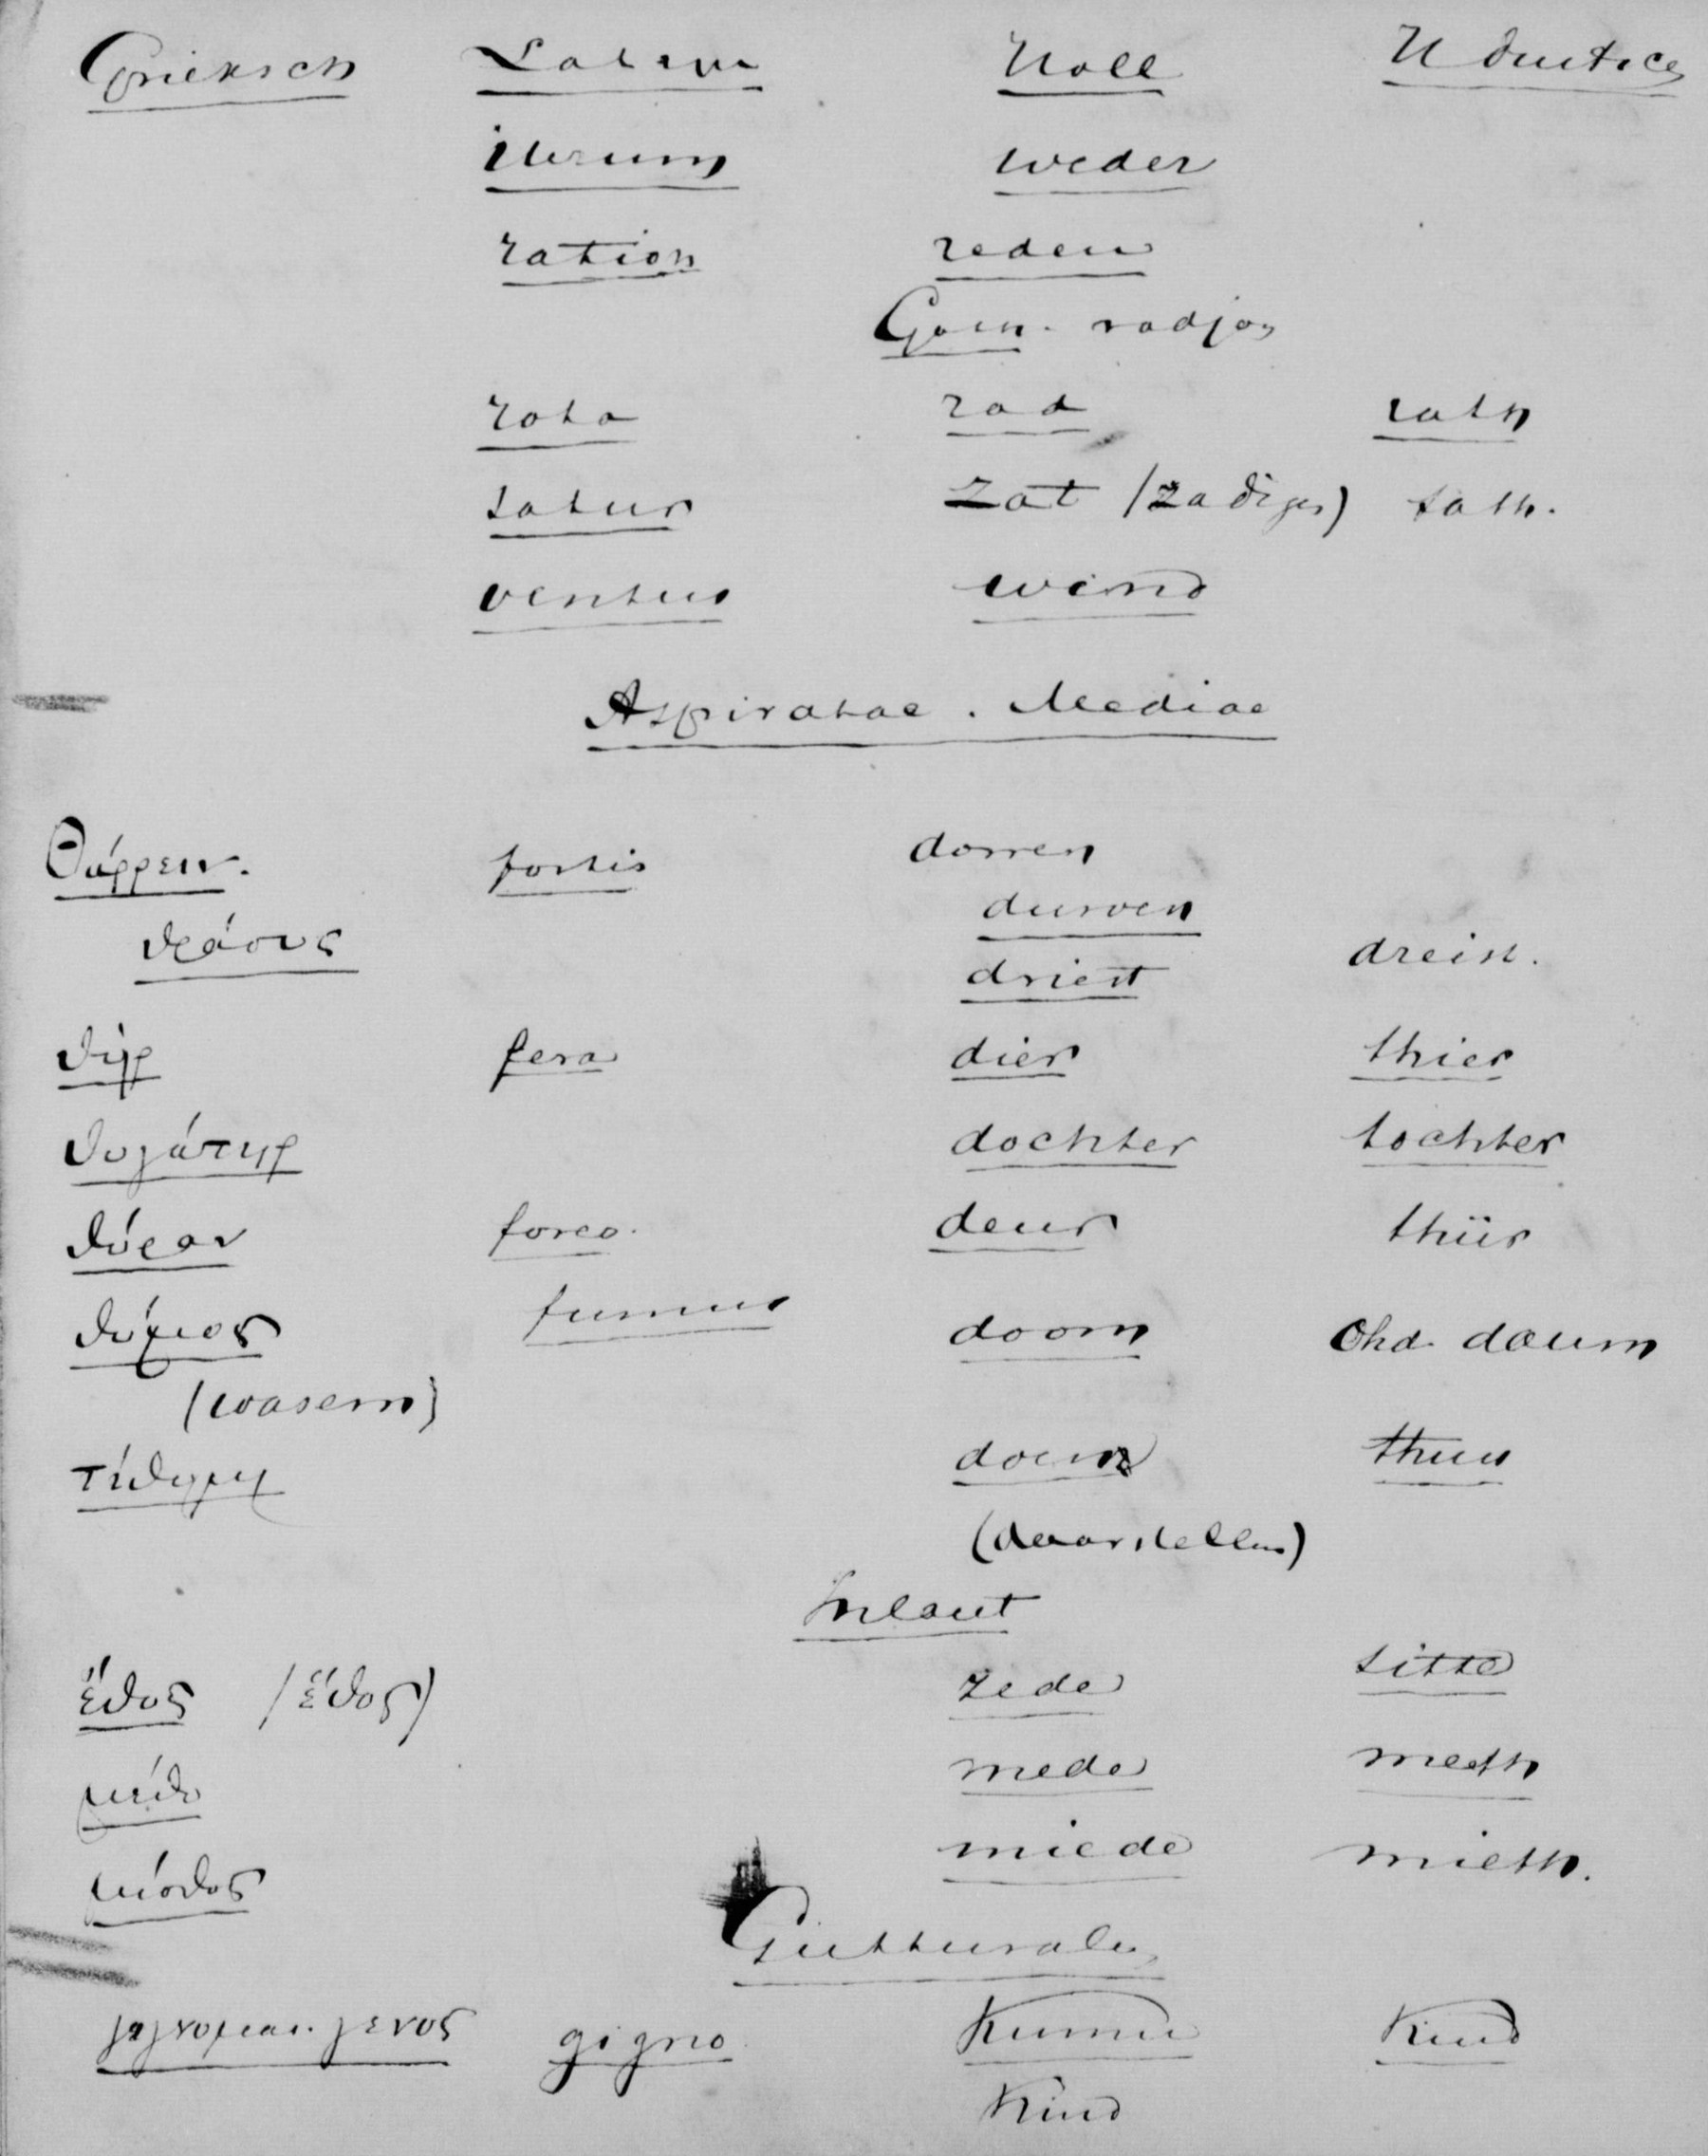 Grieksch Latijn Holl H duitsch
iterum weder
ration reden
Goth. radjo
rota rad rath
satur zat (zadigen) sath.
ventus wind
Aspiratae. Mediae
Θάρρειν. fortis dorren
durven
θράσυς driest dreist.
θήρ fera dier thier
θυγάτηρ dochter tochter
θύραν fores. deur thür
θύμος fumus doom Ohd. daum
(wasem)
τίθημι doen thun
(daarstellen)
Inlaut
ἔθος (ἔθος) zede sitte
μέθυ mede meth
μίσθος miede mieth.
Gutturales
γιγνομαι. γενος gigno kunne Kind
Kind